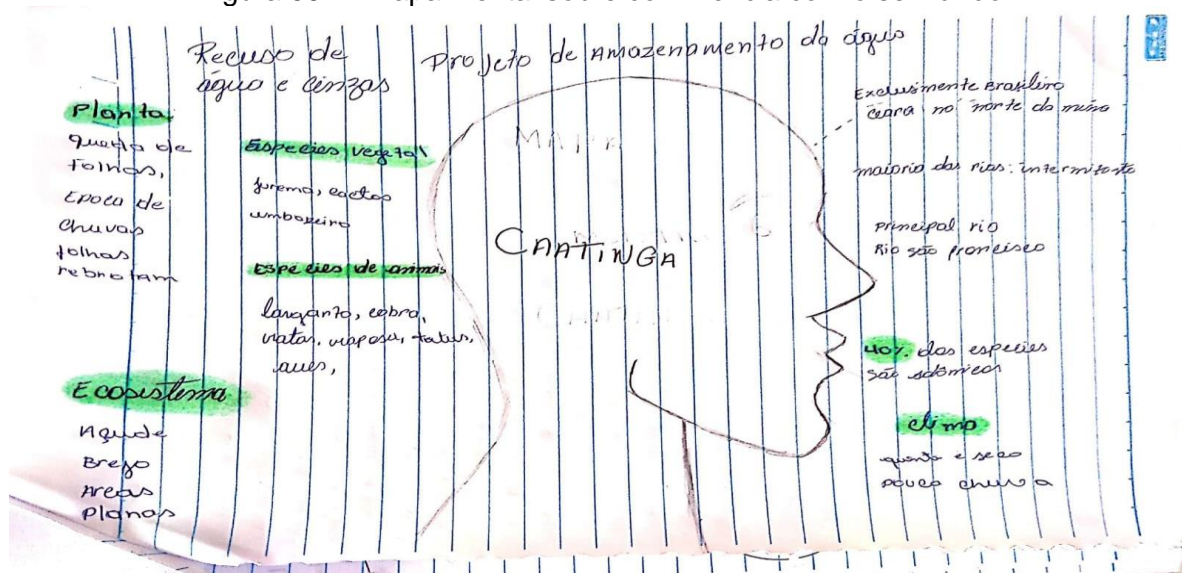 Recuso de
água e cinzas
Projeto de Amazenamento da água
Planta
queda de
folhas,
Epoca de
chuvas
folhas
rebrotam
Especies vegetal
jurema, cactos
umbozeiro
Espécies de animais
cobra,
tatus,
aves,
Ecosistema
Açude
Brejo
Areas
Planas
MAPA
CAATINGA
Exclusimente Brasileiro
ceara no norte de minas
maioria dos rios: intermitente
principal rio
Rio são francisco
40% das especies
são
clima
quente e seco
pouca chuva